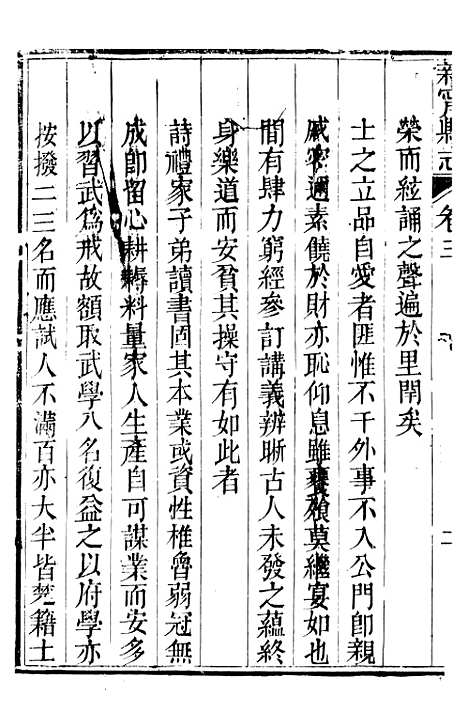 新寧縣志 卷三 二
榮而絃誦之聲遍於里閈矣
士之立品自愛者匪惟不干外事不入公門卽親
戚密邇素饒於財亦恥仰息雖饔飱莫繼宴如也
間有肆力窮經參訂講義辨晰古人未發之蘊終
身樂道而安貧其操守有如此者
詩禮家子弟讀書固其本業或資性椎魯弱冠無
成卽留心耕耨料量家人生產自可謀業而安多
以習武爲戒故額取武學八名復益之以府學亦
按撥二三名而應試人不滿百亦大半皆楚籍士